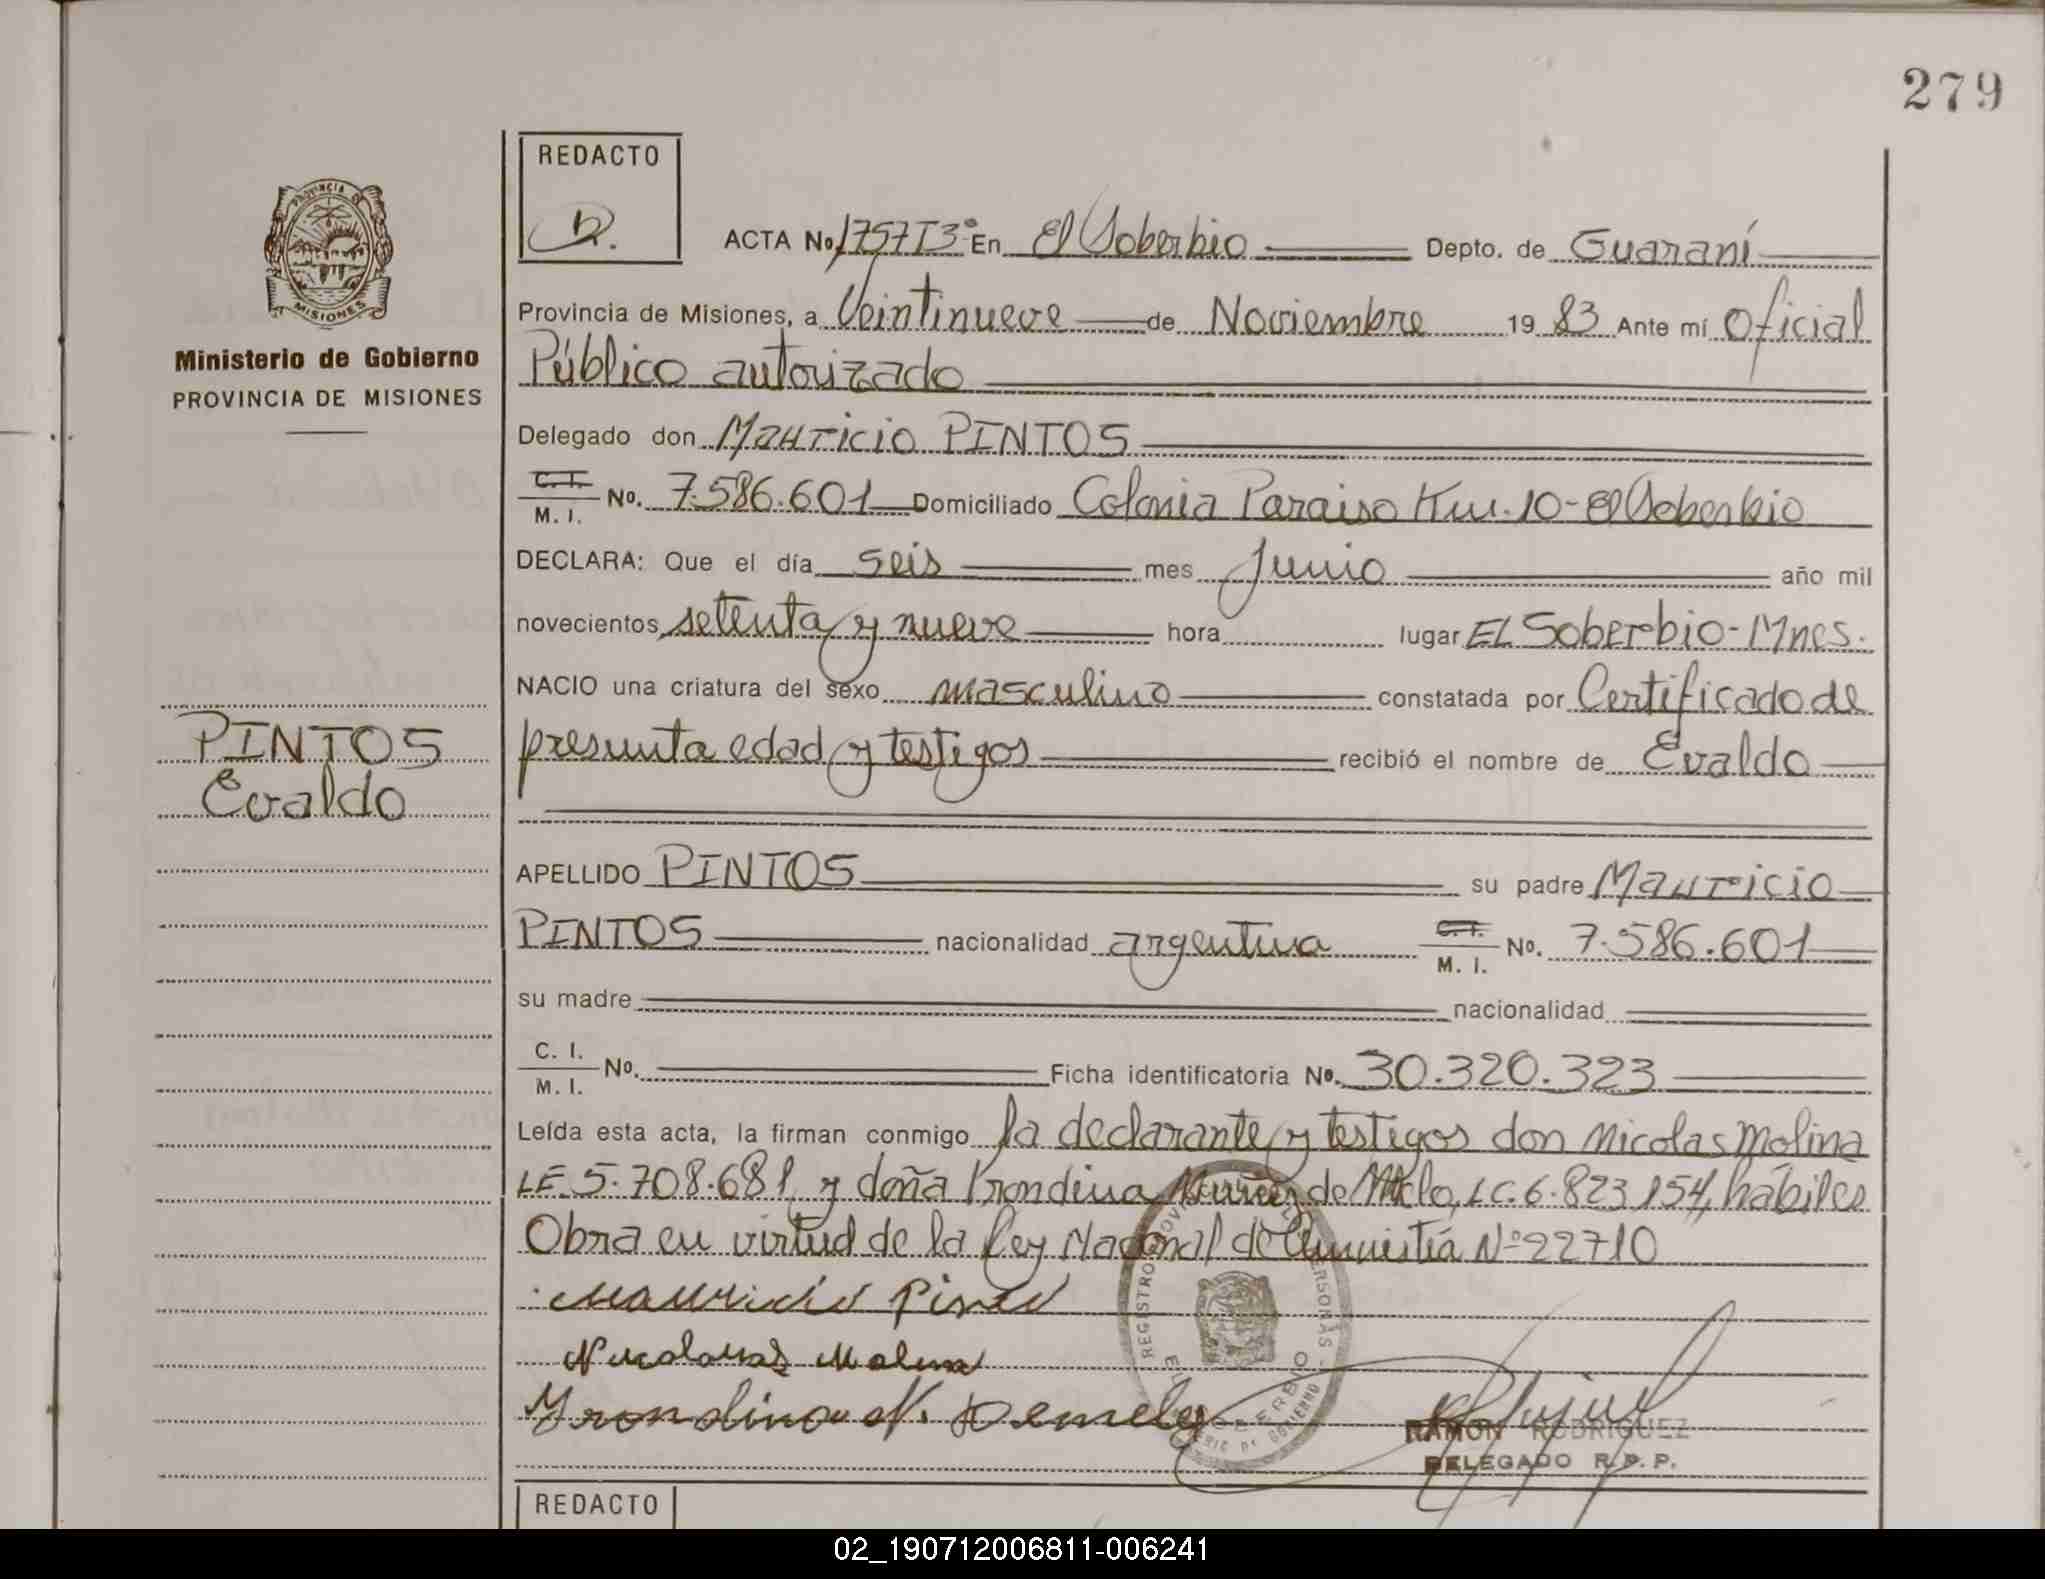 279
REDACTO
R.
PROVINCIA DE
MISIONES
Ministerio de Gobierno
PROVINCIA DE MISIONES
PINTOS
Evaldo
ACTA No. 1757T3º En El Soberbio Depto. de Guaraní
Provincia de Misiones, a Veintinueve de Noviembre 19 83 Ante mí Oficial
Público autorizado
Delegado don Mauricio PINTOS
C. I.
M. I. No. 7.586.601 Domiciliado Colonia Paraiso Km. 10 - El Soberbio
DECLARA: Que el día seis mes Junio año mil
novecientos setenta y nueve hora lugar EL Soberbio - Mnes.
NACIO una criatura del sexo masculino constatada por Certificado de
presunta edad y testigos recibió el nombre de Evaldo
APELLIDO PINTOS su padre Mauricio
PINTOS nacionalidad argentina C. I. M. I. No. 7.586.601
su madre nacionalidad
C. I.
M. I. No. Ficha identificatoria No. 30.320.323
Leída esta acta, la firman conmigo la declarante y testigos don Nicolas Molina
LE. 5.708.681, y doña Irondina de Melo, LC. 6.823.154, hábiles
Obra en virtud de la Ley Nacional de Amnistía Nº 22710
Mauricio
Molina
REGISTRO PROVINCIAL DE LAS PERSONAS
EL SOBERBIO
MINISTERIO DE GOBIERNO
RAMON RODRIGUEZ
DELEGADO R. P. P.
REDACTO
02_190712006811-006241